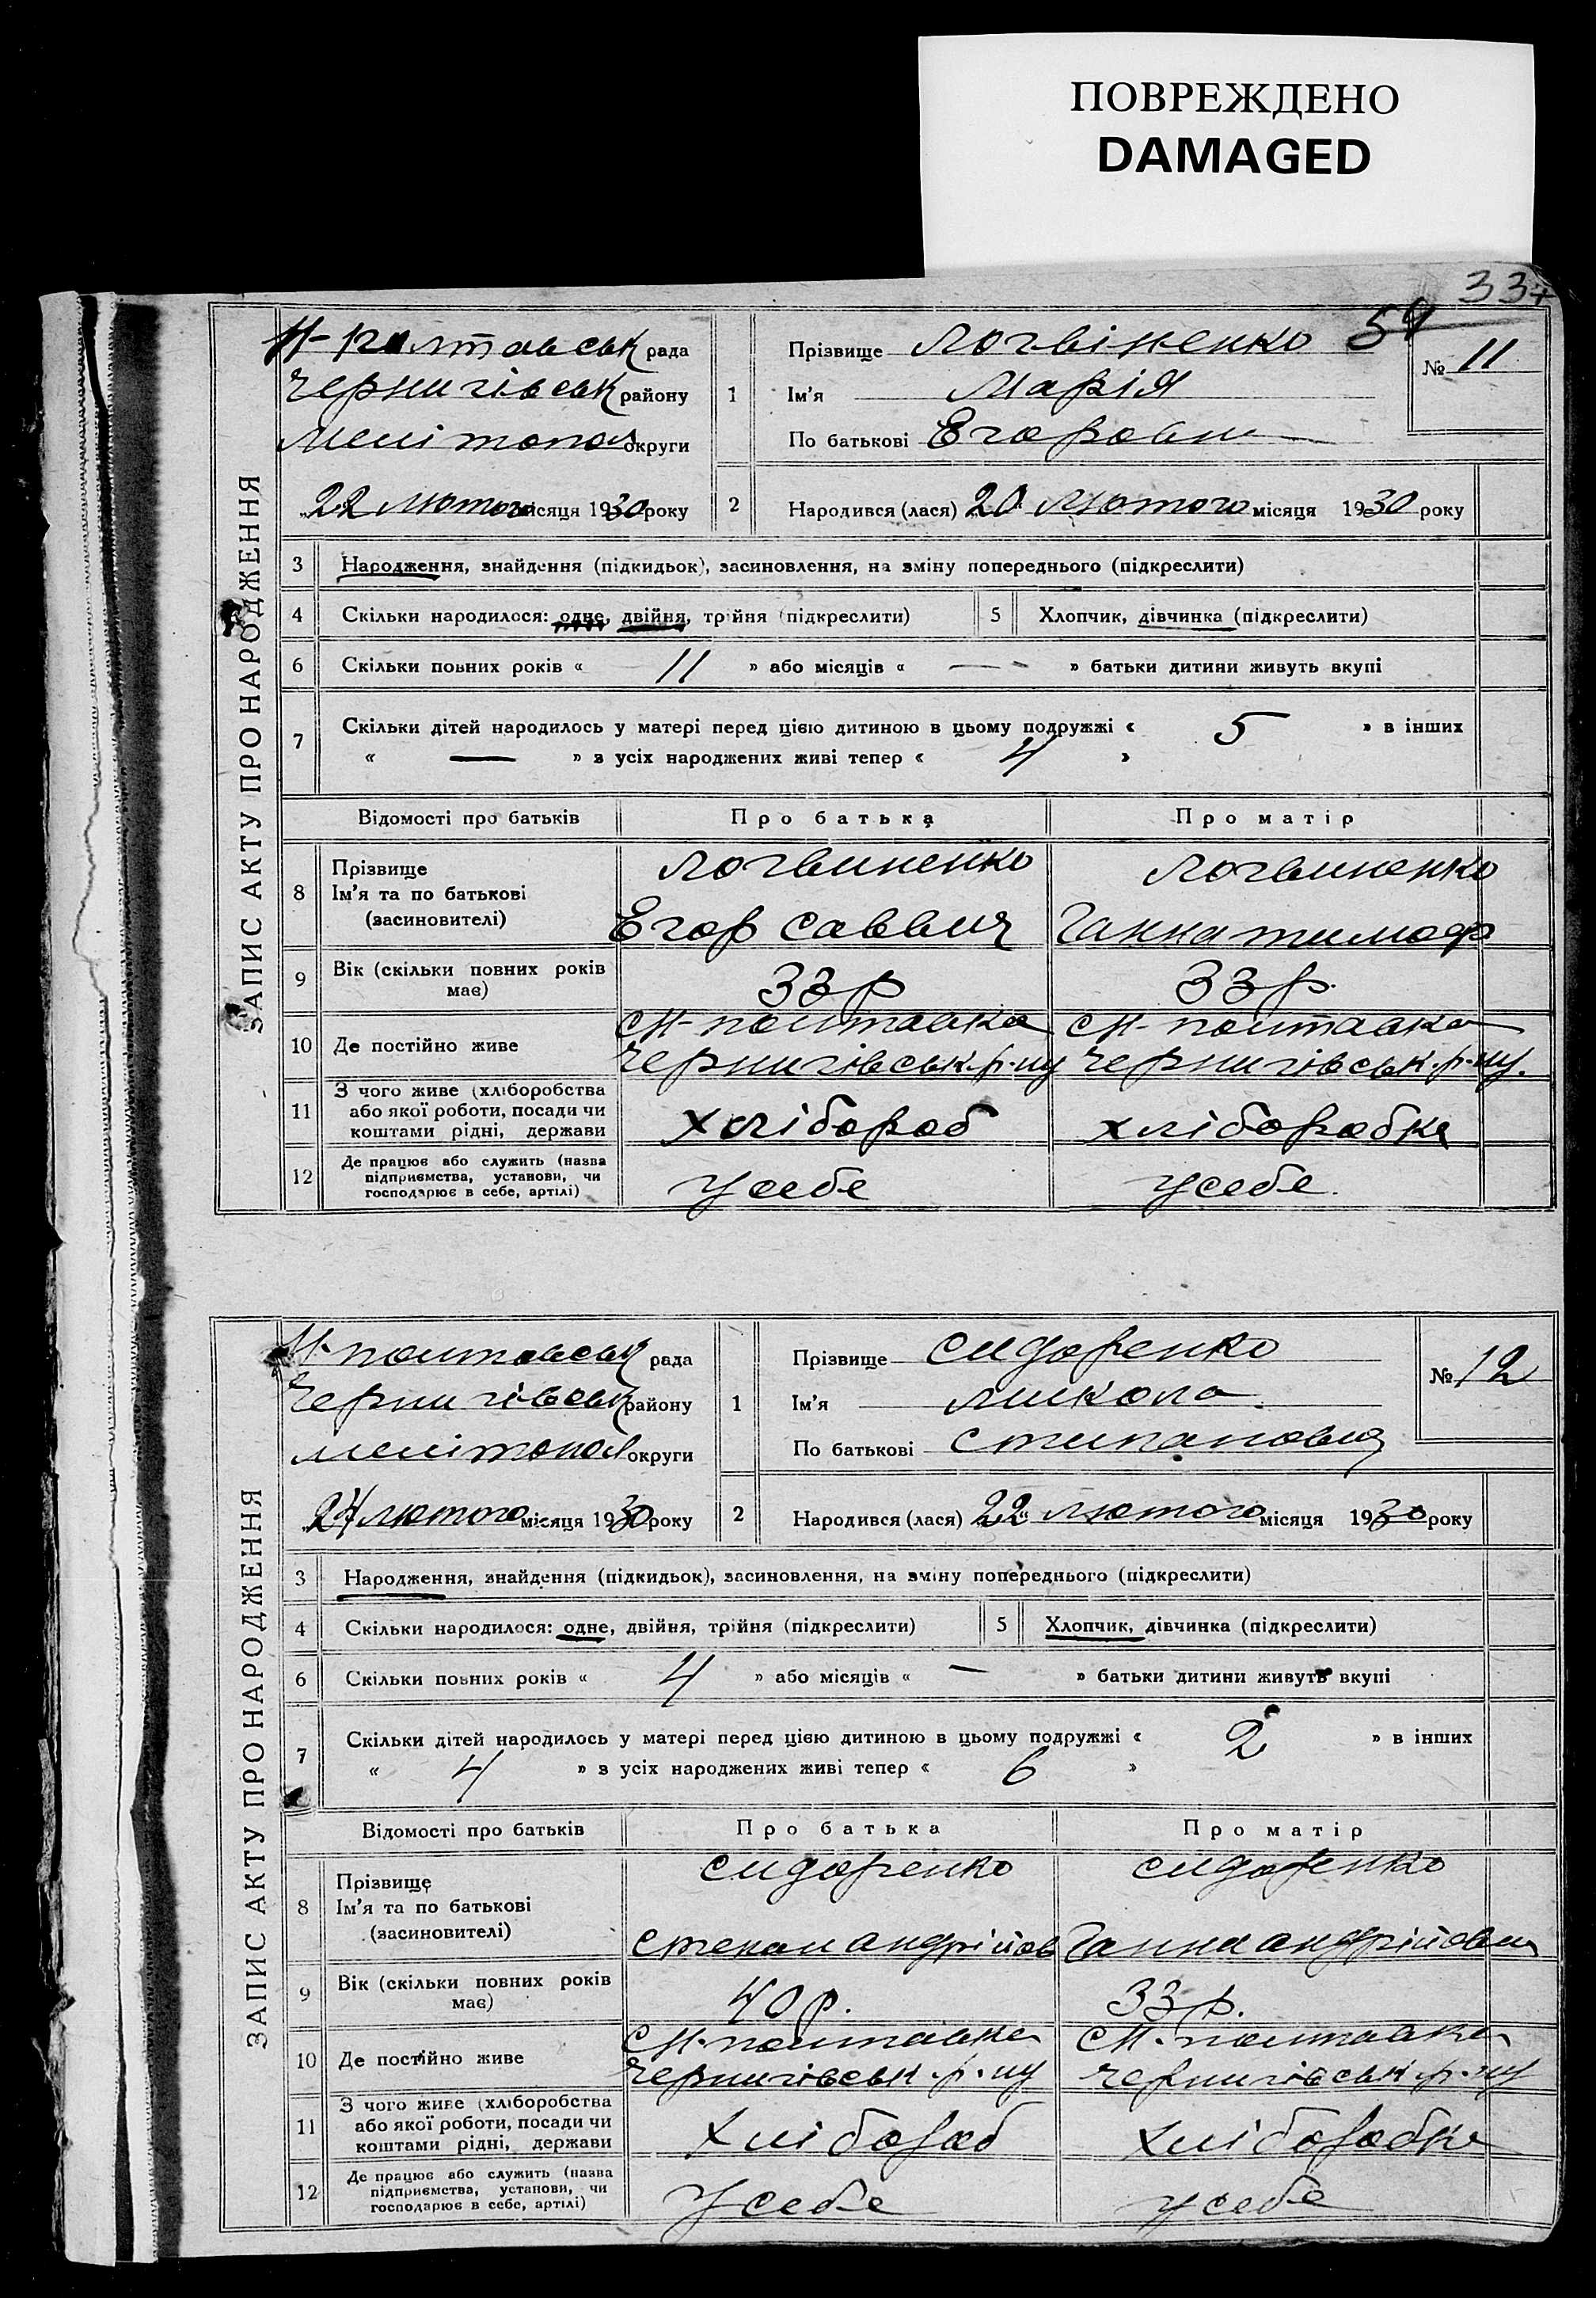 ПОВРЕЖДЕНО
DAMAGED
33
54
ЗАПИС АКТУ ПРО НАРОДЖЕННЯ
Н-Полтавськ рада
Чернигівськ району
Мелітопол округи
„22 лютого місяця 1930 року
1 Прізвище Логвіненко
Ім'я Марія
По батькові Егоровна
№ 11
2 Народився (лася) „20 лютого місяця 1930 року
3 Народження, знайдення (підкидьок), засиновлення, на зміну попереднього (підкреслити)
4 Скільки народилося: одне, двійня, трійня (підкреслити) 5 Хлопчик, дівчинка (підкреслити)
6 Скільки повних років « 11 » або місяців « — » батьки дитини живуть вкупі
7 Скільки дітей народилось у матері перед цією дитиною в цьому подружжі « 5 » в інших
« — » з усіх народжених живі тепер « 4 »
Відомості про батьків Про батька Про матір
8 Прізвище Ім'я та по батькові (засиновителі)
Логвиненко Логвиненко
Егор Саввич Ганна Тимоф
9 Вік (скільки повних років має) 33 р 33 р.
10 Де постійно живе
сН-Полтавка сН-Полтавка
Чернигівськ.р-ну Чернигівськ.р-ну.
11 З чого живе (хліборобства або якої роботи, посади чи коштами рідні, держави
хлібороб хлібородка
12 Де працює або служить (назва підприємства, установи, чи господарює в себе, артілі)
У себе У себе.
ЗАПИС АКТУ ПРО НАРОДЖЕННЯ
Н-Полтавськ рада
Чернигівськ району
Мелітопол округи
„24 лютого місяця 1930 року
1 Прізвище Сидоренко
Ім'я Микола
По батькові Стипанович
№ 12
2 Народився (лася) „22 лютого місяця 1930 року
3 Народження, знайдення (підкидьок), засиновлення, на зміну попереднього (підкреслити)
4 Скільки народилося: одне, двійня, трійня (підкреслити) 5 Хлопчик, дівчинка (підкреслити)
6 Скільки повних років « 4 » або місяців « — » батьки дитини живуть вкупі
7 Скільки дітей народилось у матері перед цією дитиною в цьому подружжі « 2 » в інших
« 4 » з усіх народжених живі тепер « 6 »
Відомості про батьків Про батька Про матір
8 Прізвище Ім'я та по батькові (засиновителі)
Сидоренко Сидоренко
Степан Андрійов Ганна Андрійовна
9 Вік (скільки повних років має) 40 р. 33 р.
10 Де постійно живе
сН-Полтавка сН-Полтавка
Чернигівськ.р-ну Чернигівськ.р-ну
11 З чого живе (хліборобства або якої роботи, посади чи коштами рідні, держави
Хлібороб Хліборобка
12 Де працює або служить (назва підприємства, установи, чи господарює в себе, артілі)
У себе У себе